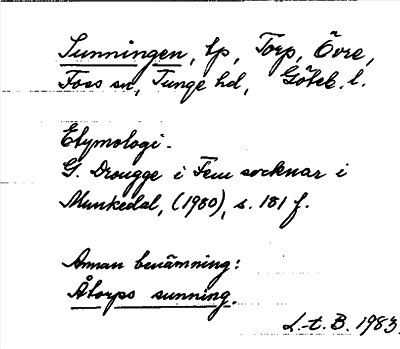 Sunningen, tp, Torp, Övre,
Foss sn, Tunge hd, Göteb. l.
Etymologi.
G. Drougge i Fem socknar i
Munkedal, (1980), s. 181 f.
Annan benämning:
Åtorps sunning.
L-t. B. 1983.